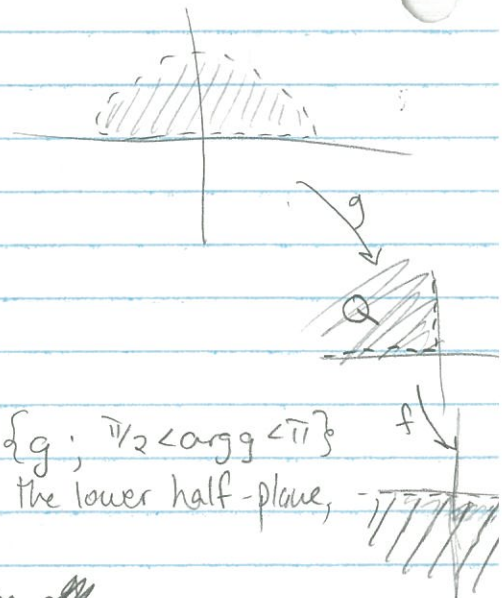 g
Q
{g ; π/2 < arg g < π}
f
the lower half-plane,